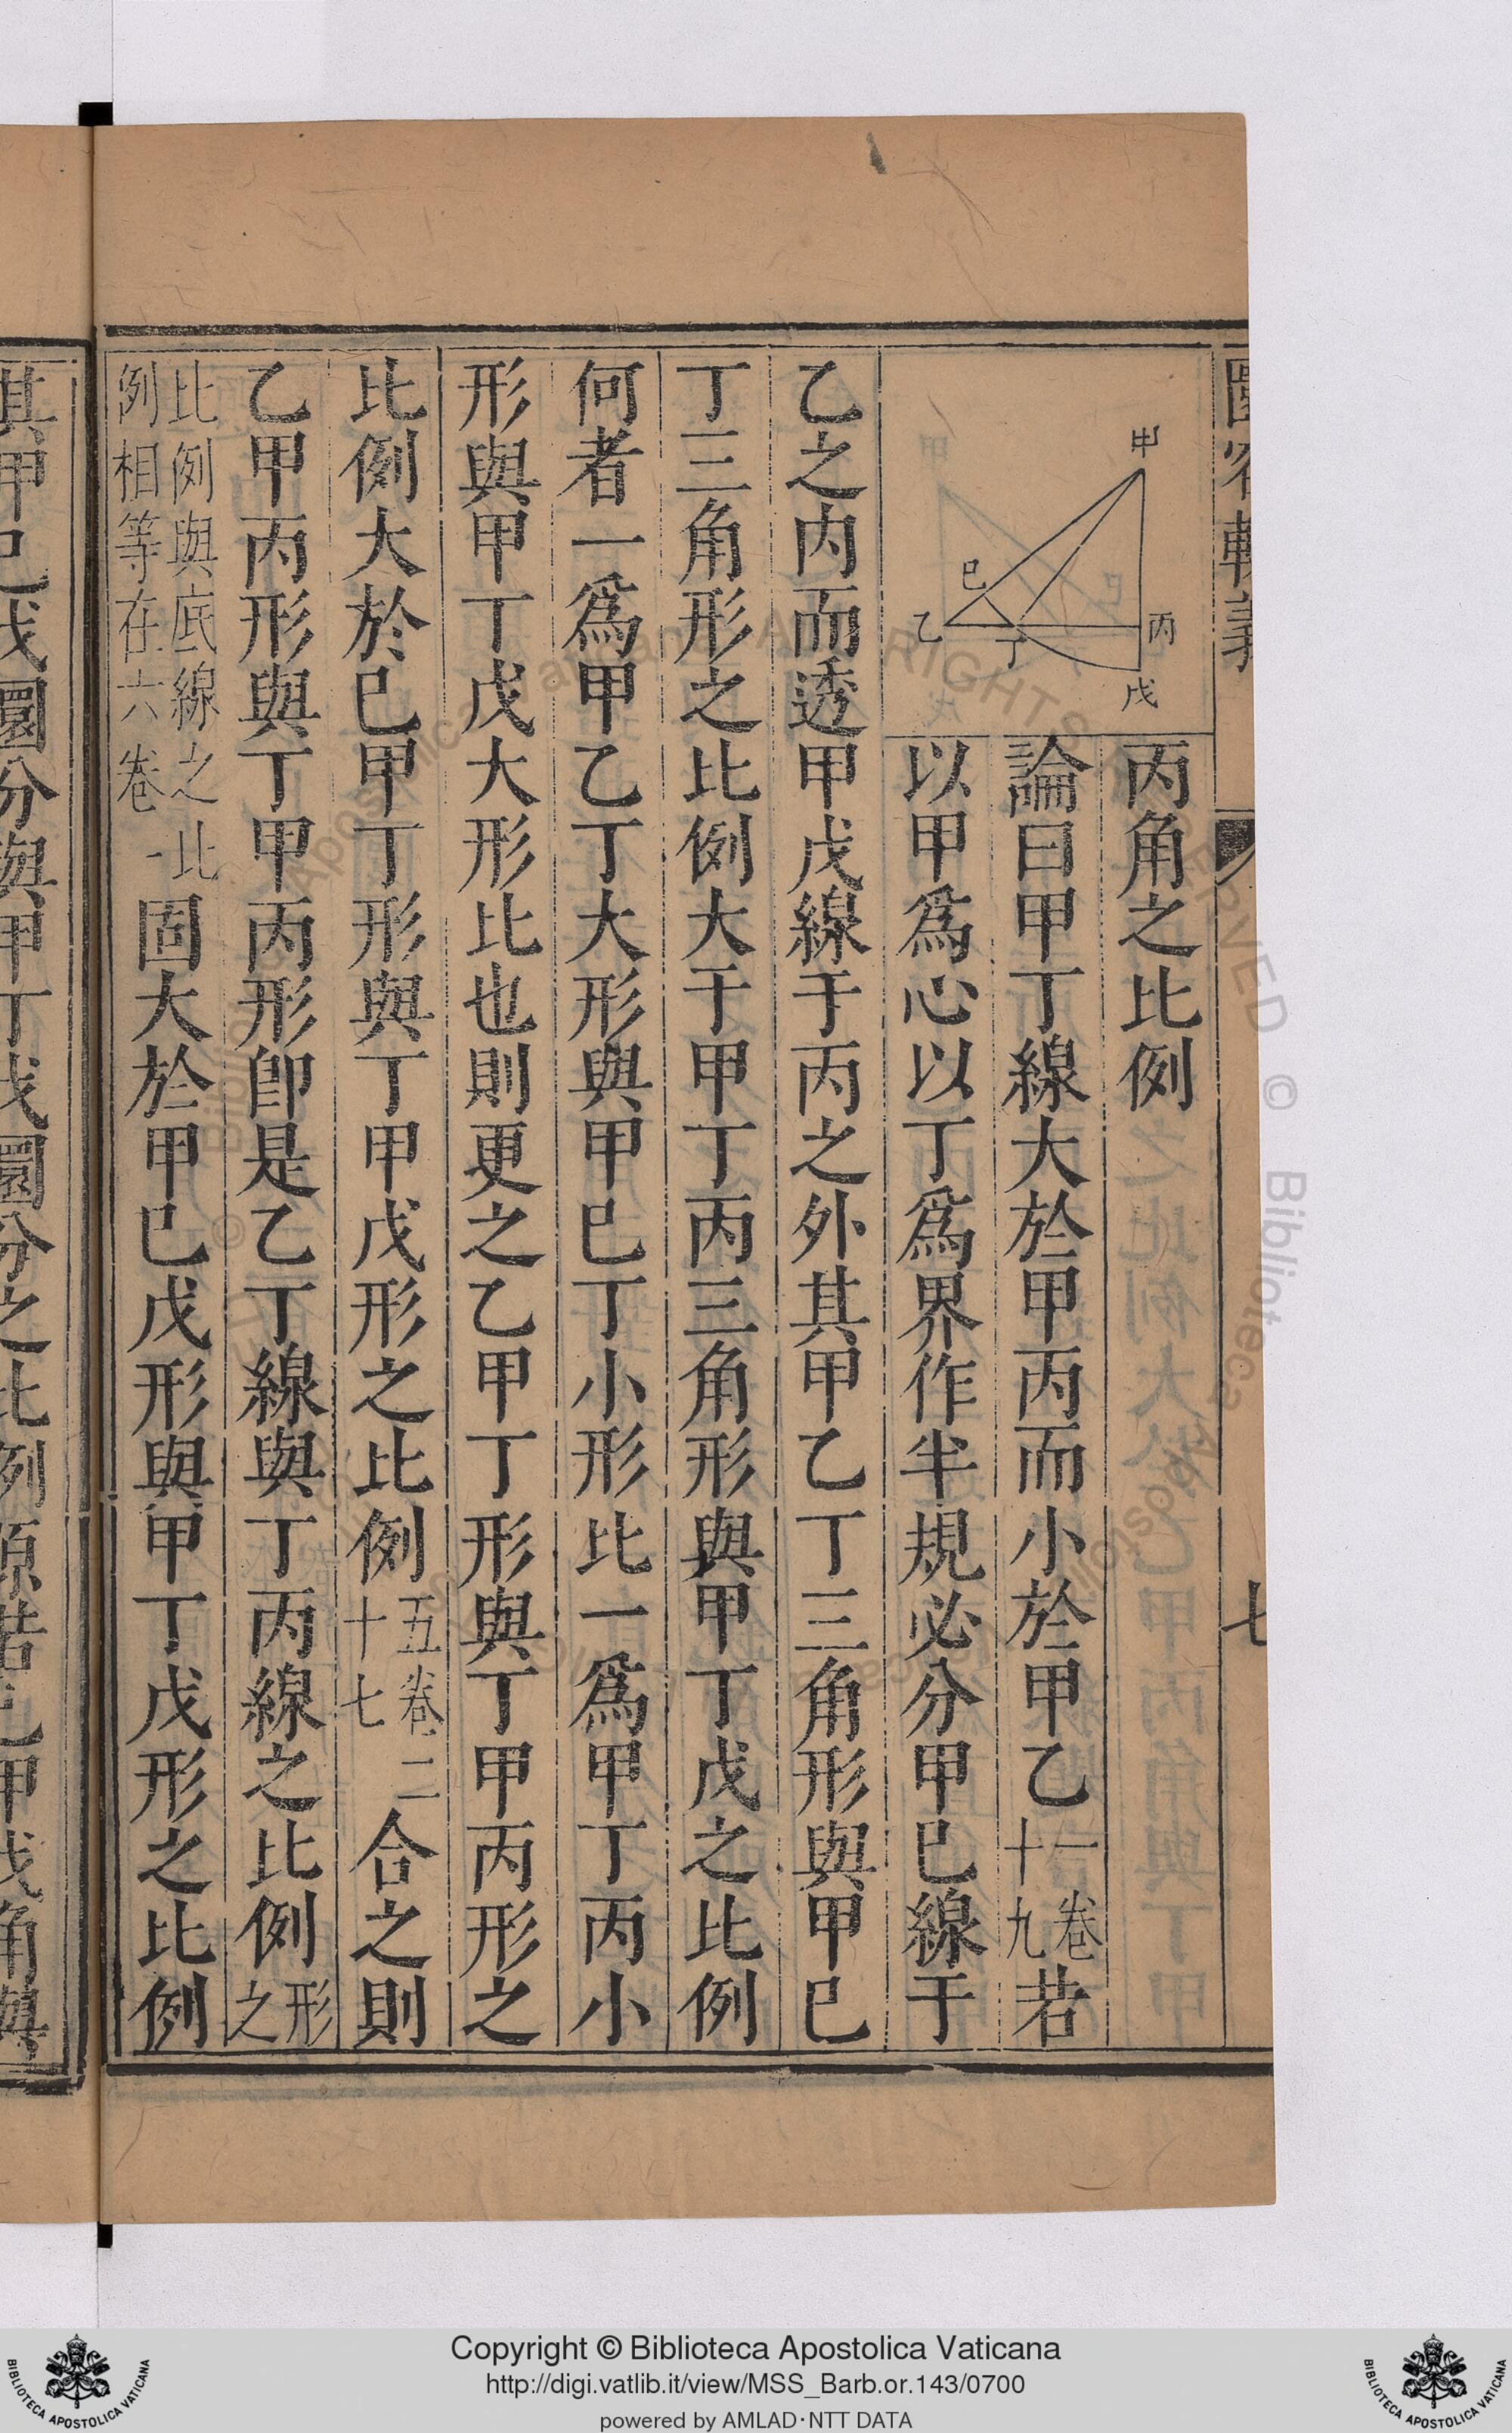 圜容較義
七
甲
己
乙
丁
丙
戊
丙角之比例
論曰甲丁線大於甲丙而小於甲乙一卷十九若
以甲爲心以丁爲界作半規必分甲巳線于
乙之内而透甲戊線于丙之外其甲乙丁三角形與甲巳
丁三角形之比例大于甲丁丙三角形與甲丁戊之比例
何者一爲甲乙丁大形與甲巳丁小形比一爲甲丁丙小
形與甲丁戊大形比也則更之乙甲丁形與丁甲丙形之
比例大於巳甲丁形與丁甲戊形之比例五卷二十七合之則
乙甲丙形與丁甲丙形卽是乙丁線與丁丙線之比例形之
比例與底線之比例相等在六卷一固大於甲巳戊形與甲丁戊形之比例
其甲巳戊圜分與甲丁戊圜分之比例原若巳甲戊角與
Copyright © Biblioteca Apostolica Vaticana
http://digi.vatlib.it/view/MSS_Barb.or.143/0700
powered by AMLAD·NTT DATA
BIBLIOTECA APOSTOLICA VATICANA
BIBLIOTECA APOSTOLICA VATICANA